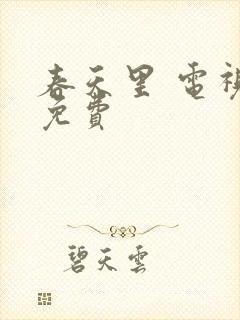 春天里 電視
免費
碧天雲